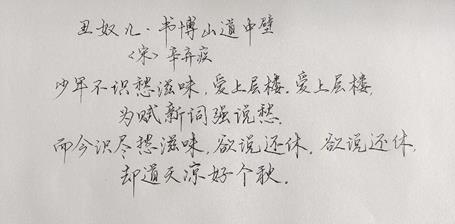 丑奴儿·书博山道中壁
〈宋〉辛弃疾
少年不识愁滋味,爱上层楼.爱上层楼,
为赋新词强说愁.
而今识尽愁滋味,欲说还休.欲说还休,
却道天凉好个秋.